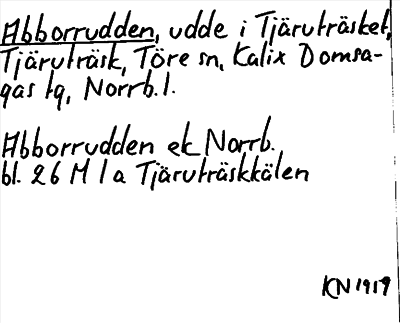 Abborrudden, udde i Tjäruträsket,
Tjäruträsk, Töre sn, Kalix Domsa-
gas tg, Norrb. l.
Abborrudden ek Norrb.
bl. 26 M 1 a Tjäruträskkälen
KN 1919